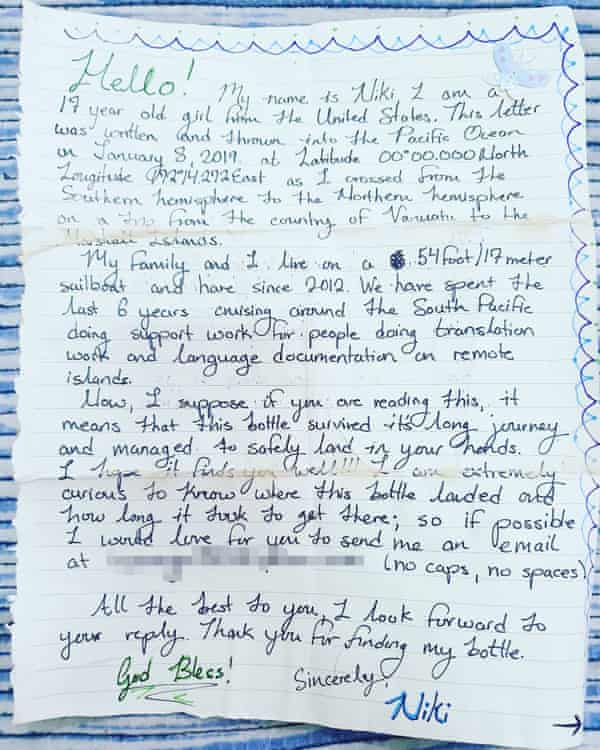 Hello! My name is Niki I am a
17 year old girl from the United States. This letter
was written and thrown into the Pacific Ocean
on January 8, 2019. at Latitude 00°00.000 North
Longitude East as I crossed from the
Southern hemisphere to the Northern hemisphere
on a trip from the country of Vanuatu to the
Marshall Islands.
My family and I live on a 54 foot/17 meter
sailboat and have since 2012. We have spent the
last 6 years cruising around the South Pacific
doing support work for people doing translation
work and language documentation on remote
islands.
Now, I suppose if you are reading this, it
means that this bottle survived it's long journey
and managed to safely land in your hands.
I hope it finds you well!!! I am extremely
curious to know where this bottle landed and
how long it took to get there; so if possible
I would love for you to send me an email
at (no caps, no spaces)
All the best to you, I look forward to
your reply. Thank you for finding my bottle.
God Bless! Sincerely,
Niki